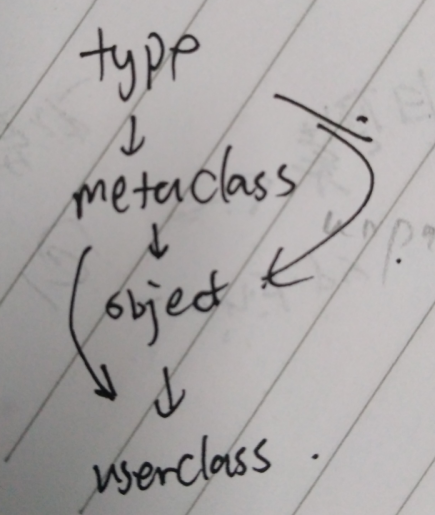 type
metaclass
object
userclass.